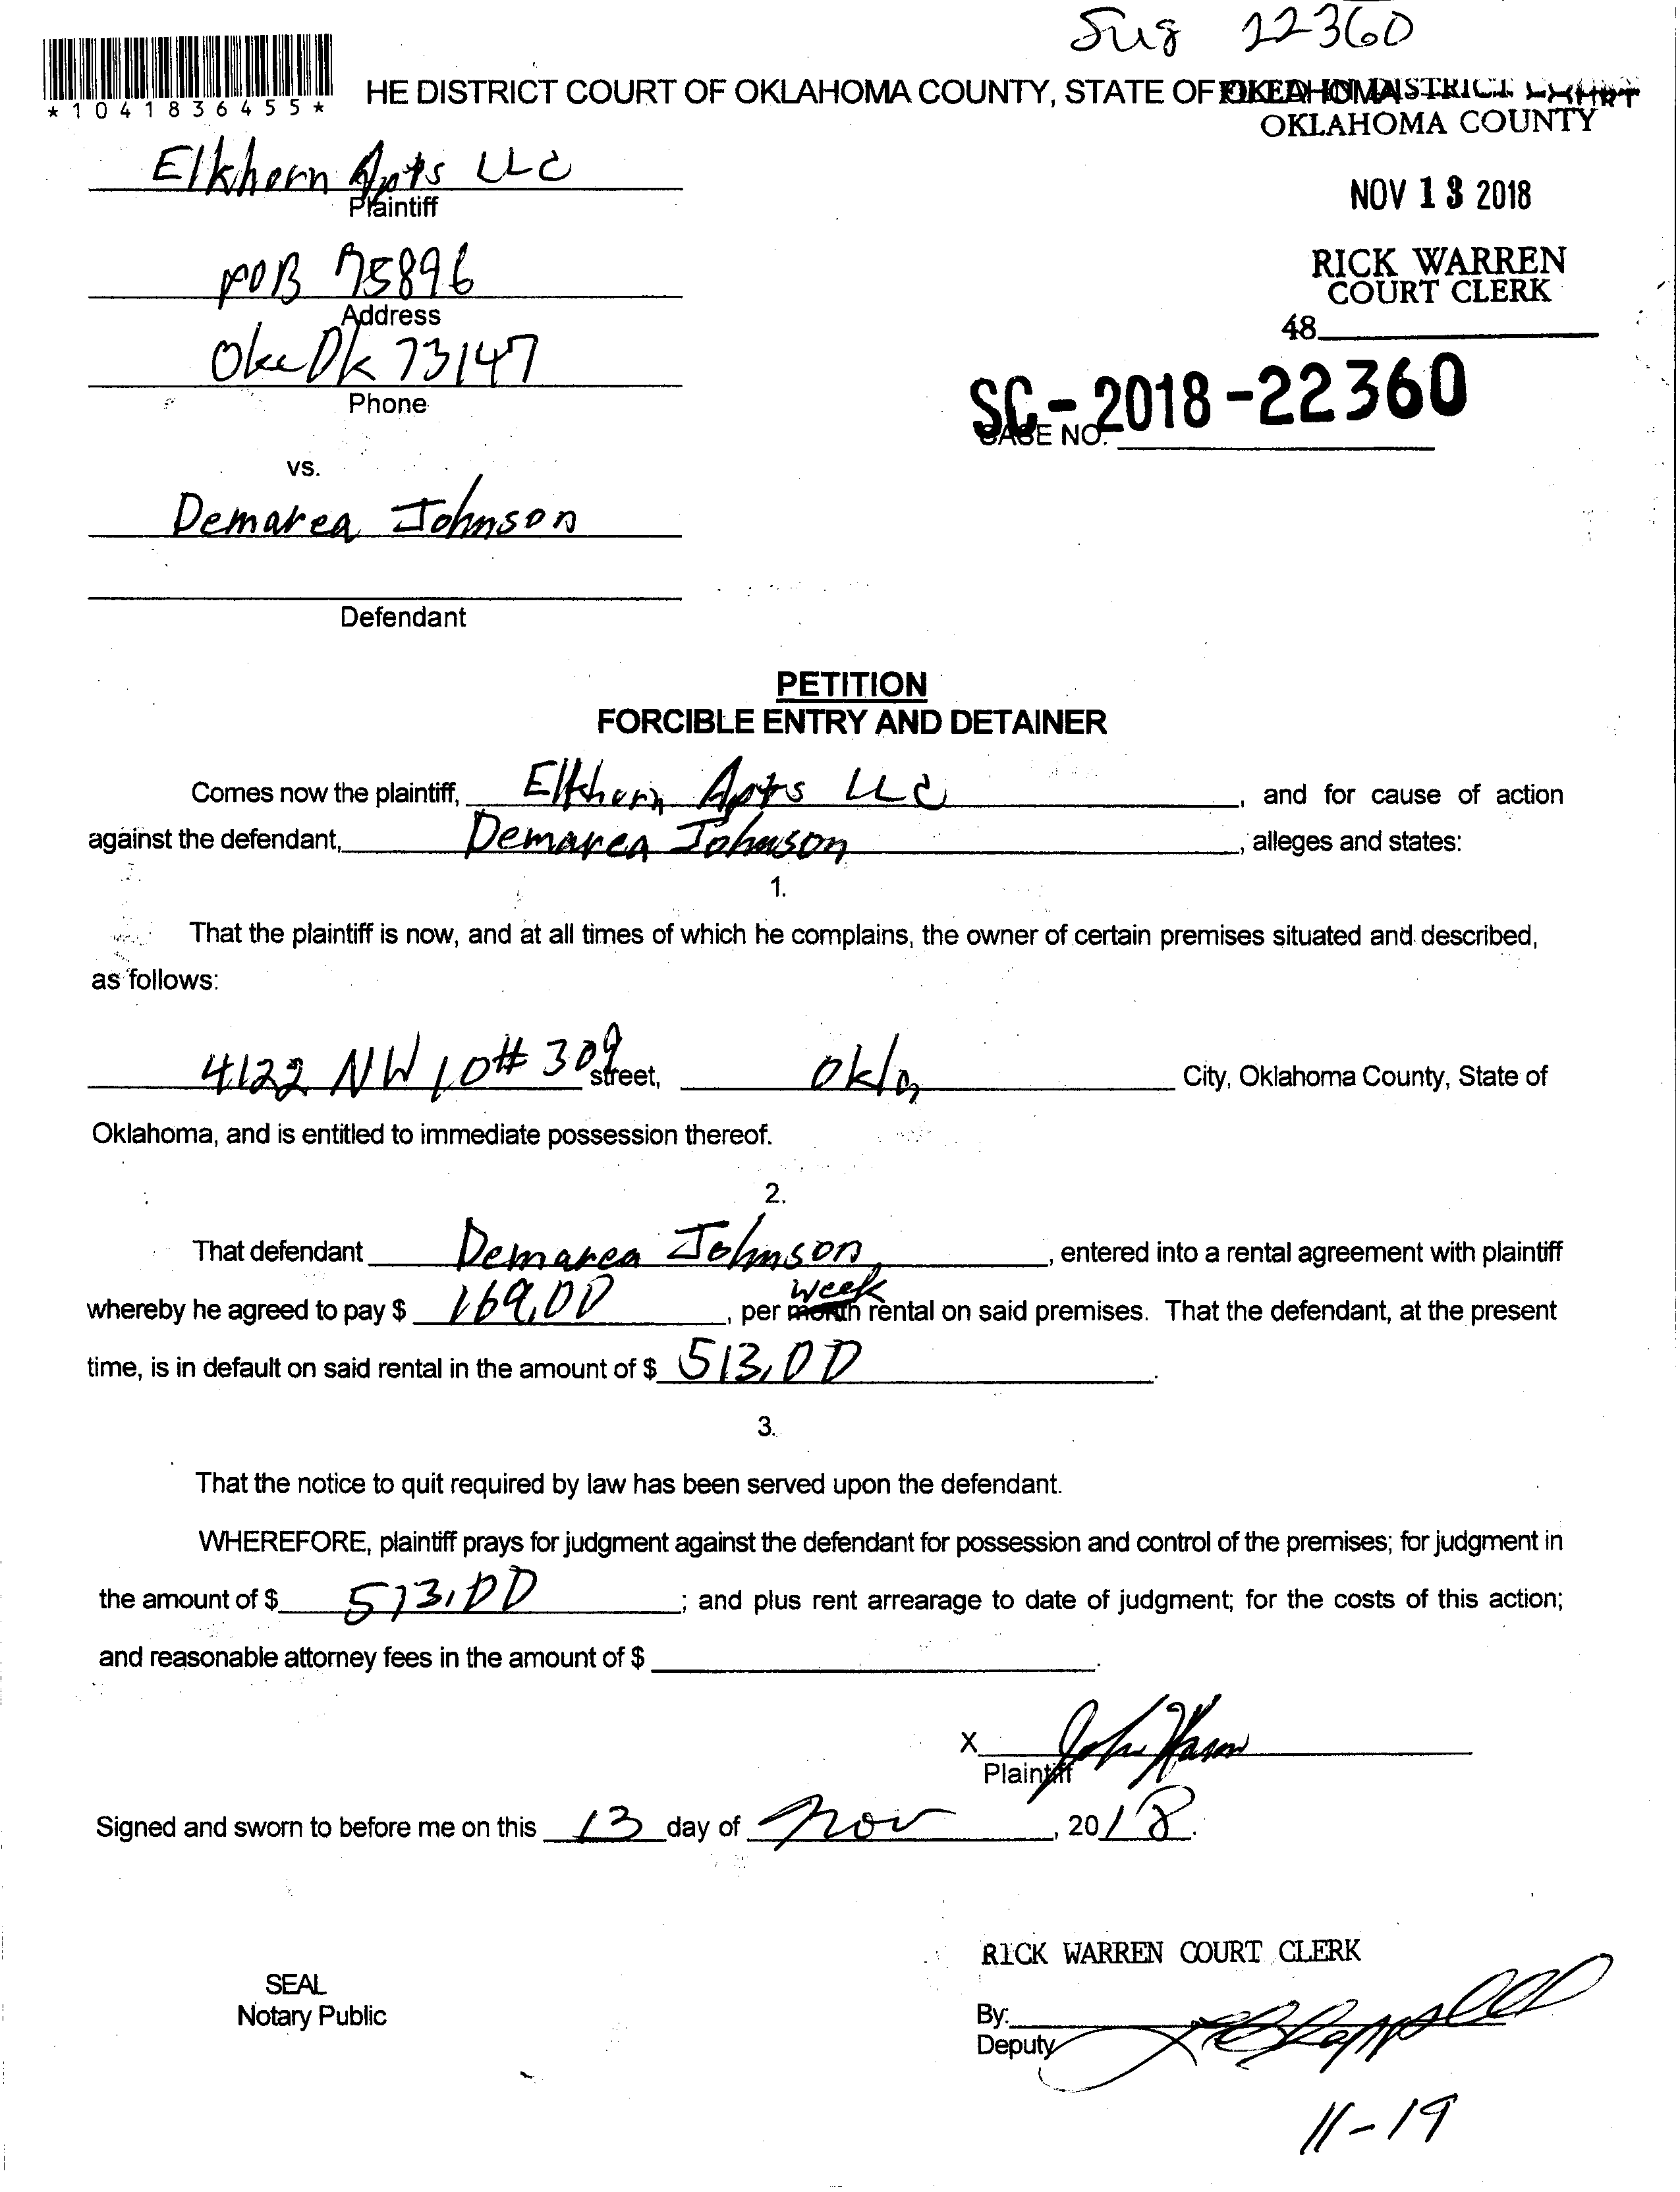 22360
*1041836455*
HE DISTRICT COURT OF OKLAHOMA COUNTY, STATE OF OKLAHOMA
OKLAHOMA COUNTY
Elkhorn Apts LLC
Plaintiff
NOV 13 2018
POB 75896
Address
RICK WARREN
COURT CLERK
48
Ok 73147
Phone
SC-2018-22360
CASE NO.
vs.
Demarea Johnson
Defendant
PETITION
FORCIBLE ENTRY AND DETAINER
Comes now the plaintiff, Elkhorn Apts LLC, and for cause of action
against the defendant, Demarea Johnson, alleges and states:
1.
That the plaintiff is now, and at all times of which he complains, the owner of certain premises situated and described,
as follows:
4122 NW 10 # 309 street, Okla City, Oklahoma County, State of
Oklahoma, and is entitled to immediate possession thereof.
2.
That defendant Demarea Johnson, entered into a rental agreement with plaintiff
week
whereby he agreed to pay $ 169.00, per month rental on said premises. That the defendant, at the present
time, is in default on said rental in the amount of $ 513.00.
3.
That the notice to quit required by law has been served upon the defendant.
WHEREFORE, plaintiff prays for judgment against the defendant for possession and control of the premises; for judgment in
the amount of $ 513.00; and plus rent arrearage to date of judgment; for the costs of this action;
and reasonable attorney fees in the amount of $ .
X John
Plaintiff
Signed and sworn to before me on this 13 day of Nov, 2018.
RICK WARREN COURT CLERK
SEAL
Notary Public
By:
Deputy
11-19